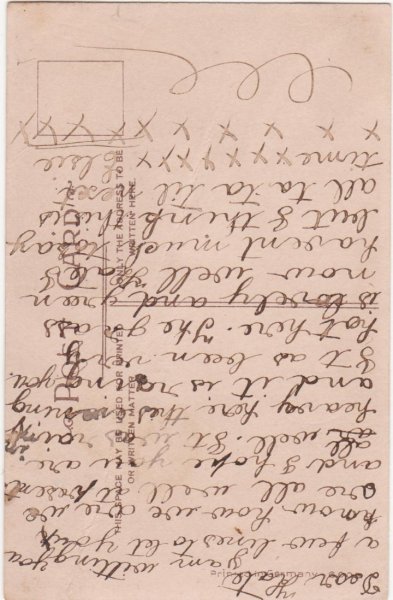 Dear
I am writing you
a few lines to let you
know how we are we
are all well at present
and I hope you are
all well. It was
heavy here this morning
and it is
It as been very
hot here. The as
is lovely and green
now well I
havent much to say
but I think this is
all ta ta til next
time x x x x x x Elsie
x x x x x x x x x
POST CARD
THIS SPACE MAY BE USED FOR PRINTED
OR WRITTEN MATTER
ONLY THE ADDRESS TO BE
WRITTEN HERE.
Printed in Germany